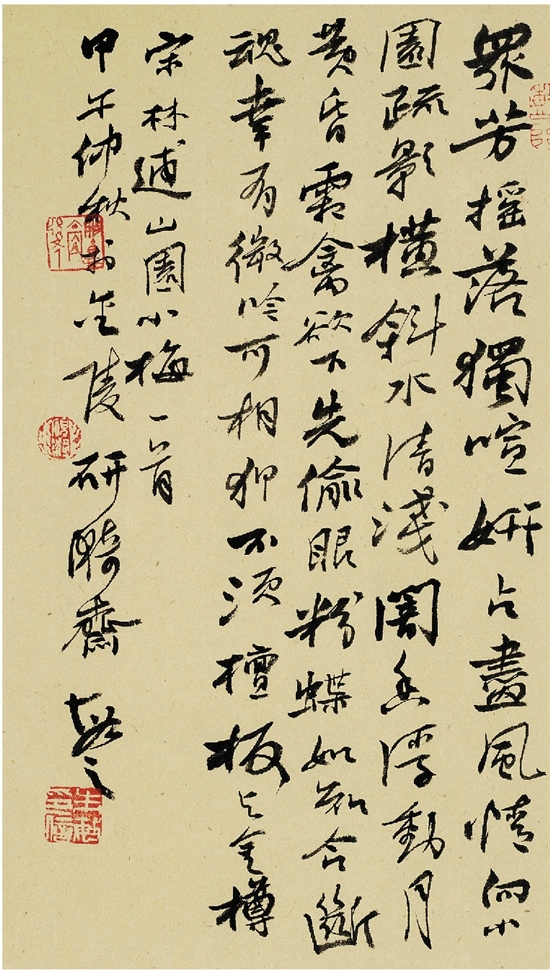 眾芳摇落獨喧妍占盡風情向小
園疏影橫斜水清淺闇香浮動月
黄昏霜禽欲下先偷眼粉蝶如知合斷
魂幸有微吟可相狎不須檀板与金樽
宋林逋山園小梅一首
甲午仲秋於金陵研齋